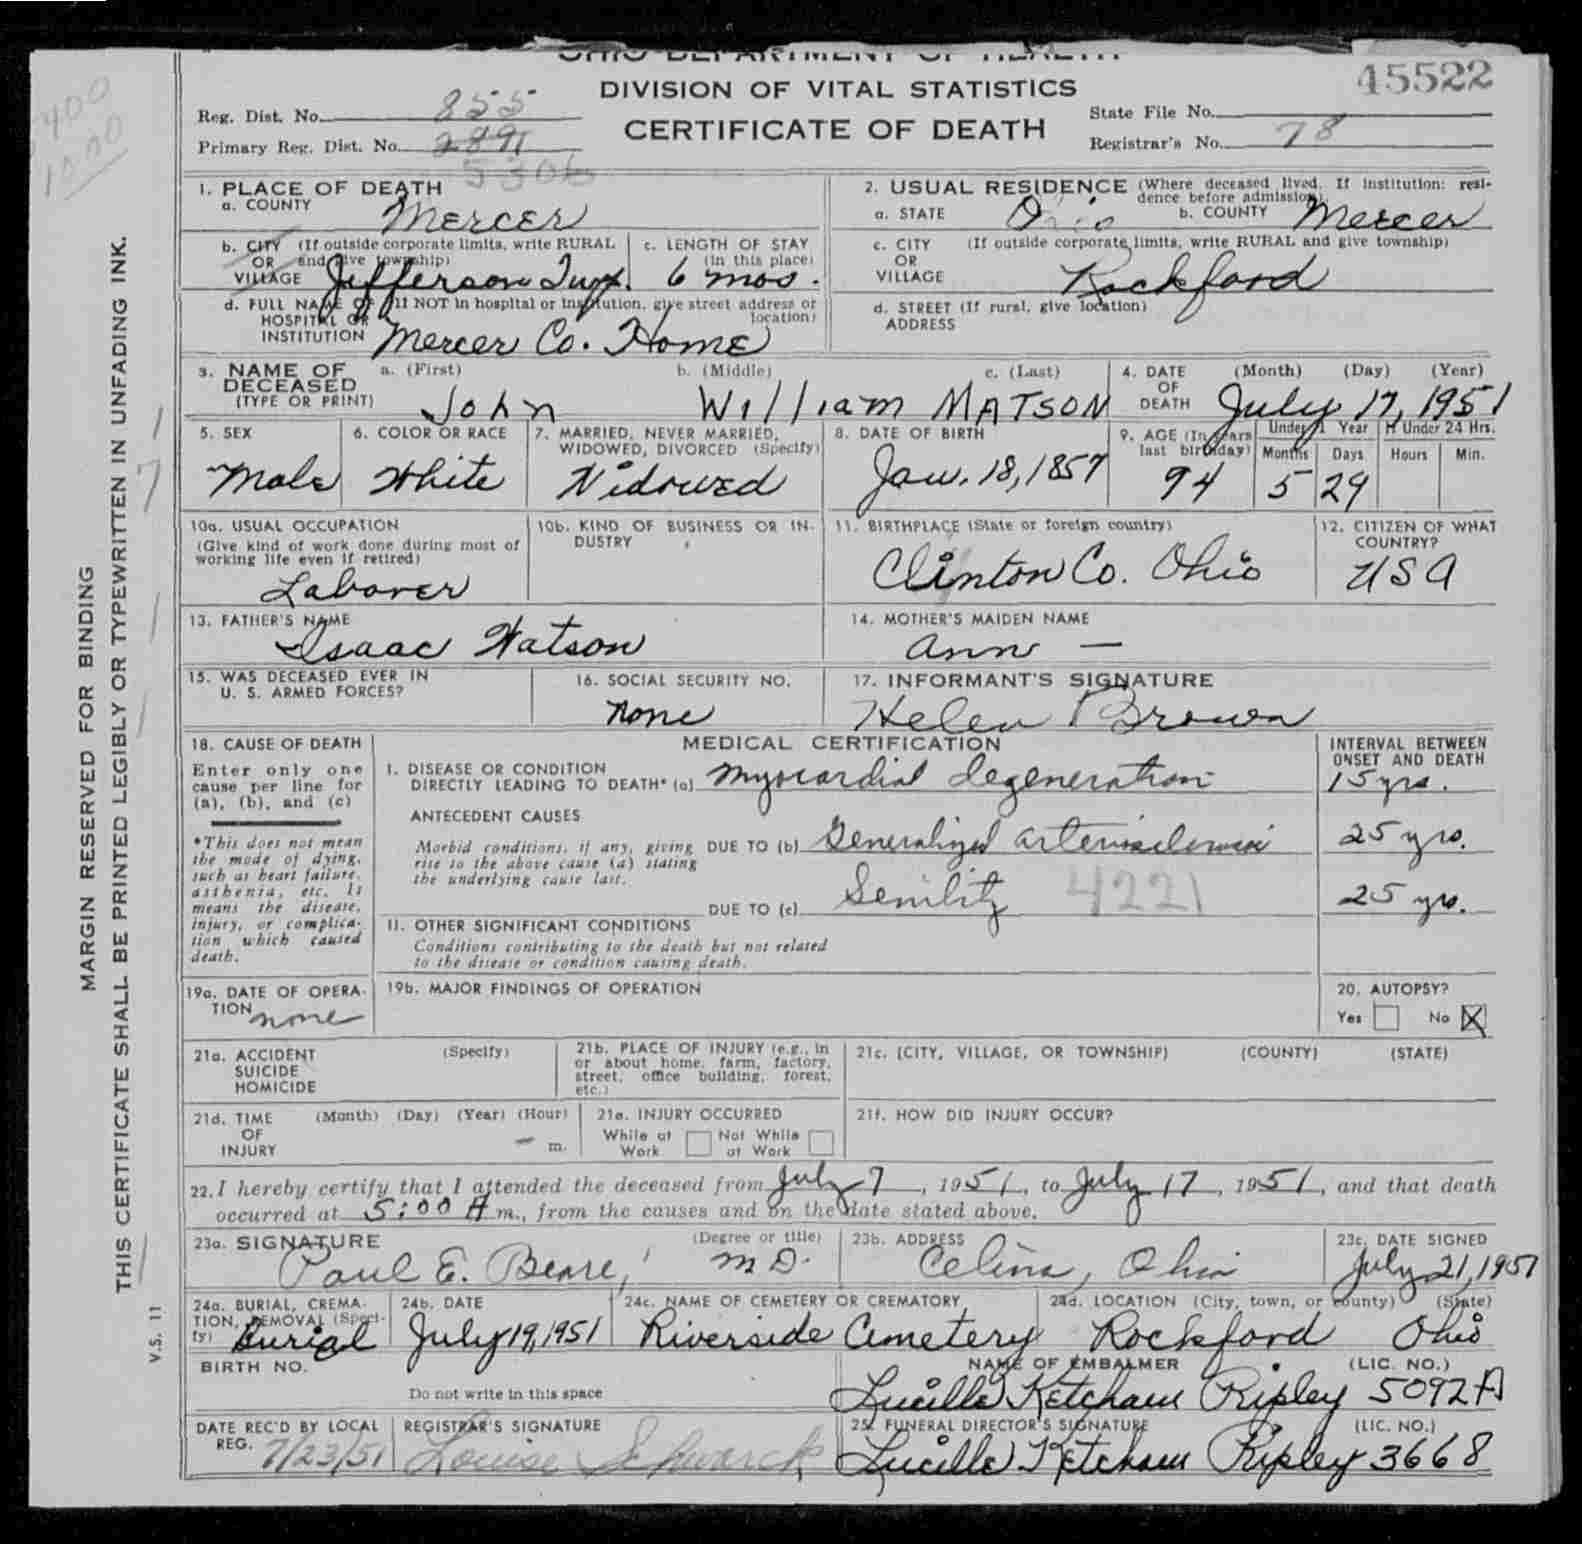 OHIO DEPARTMENT OF HEALTH
DIVISION OF VITAL STATISTICS
CERTIFICATE OF DEATH
45522
Reg. Dist. No. 855
State File No.
Primary Reg. Dist. No. 2891
Registrar's No. 78
5306
1. PLACE OF DEATH
a. COUNTY Mercer
2. USUAL RESIDENCE (Where deceased lived. If institution: residence before admission).
a. STATE Ohio b. COUNTY Mercer
b. CITY (If outside corporate limits, write RURAL
OR and give township)
VILLAGE Jefferson Twp.
c. LENGTH OF STAY
(in this place)
6 mos.
c. CITY (If outside corporate limits, write RURAL and give township)
OR
VILLAGE Rockford
d. FULL NAME OF (If NOT in hospital or institution, give street address or location)
HOSPITAL OR
INSTITUTION Mercer Co. Home
d. STREET (If rural, give location)
ADDRESS
3. NAME OF DECEASED
(TYPE OR PRINT)
a. (First) b. (Middle) c. (Last)
John William MATSON
4. DATE OF DEATH
(Month) (Day) (Year)
July 17, 1951
5. SEX
Male
6. COLOR OR RACE
White
7. MARRIED, NEVER MARRIED,
WIDOWED, DIVORCED (Specify)
Widowed
8. DATE OF BIRTH
Jan. 18, 1857
9. AGE (In years last birthday)
94
Under 1 Year If Under 24 Hrs.
Months Days Hours Min.
5 29
10a. USUAL OCCUPATION
(Give kind of work done during most of
working life even if retired)
Laborer
10b. KIND OF BUSINESS OR INDUSTRY
11. BIRTHPLACE (State or foreign country)
Clinton Co. Ohio
12. CITIZEN OF WHAT COUNTRY?
USA
13. FATHER'S NAME
Isaac Watson
14. MOTHER'S MAIDEN NAME
Ann —
15. WAS DECEASED EVER IN
U. S. ARMED FORCES?
16. SOCIAL SECURITY NO.
none
17. INFORMANT'S SIGNATURE
Helen Brown
18. CAUSE OF DEATH
Enter only one
cause per line for
(a), (b), and (c)
*This does not mean
the mode of dying,
such as heart failure,
asthenia, etc. It
means the disease,
injury, or complica-
tion which caused
death.
MEDICAL CERTIFICATION
INTERVAL BETWEEN
ONSET AND DEATH
I. DISEASE OR CONDITION
DIRECTLY LEADING TO DEATH* (a) Myocardial degeneration 15 yrs.
ANTECEDENT CAUSES
Morbid conditions, if any, giving
rise to the above cause (a) stating
the underlying cause last.
DUE TO (b) Generalized arteriosclerosis 25 yrs.
DUE TO (c) Senility 4221 25 yrs.
II. OTHER SIGNIFICANT CONDITIONS
Conditions contributing to the death but not related
to the disease or condition causing death.
19a. DATE OF OPERA-
TION none
19b. MAJOR FINDINGS OF OPERATION
20. AUTOPSY?
Yes No X
21a. ACCIDENT (Specify)
SUICIDE
HOMICIDE
21b. PLACE OF INJURY (e.g., in
or about home, farm, factory,
street, office building, forest,
etc.)
21c. (CITY, VILLAGE, OR TOWNSHIP) (COUNTY) (STATE)
21d. TIME (Month) (Day) (Year) (Hour)
OF
INJURY — m.
21e. INJURY OCCURRED
While at Work Not While at Work
21f. HOW DID INJURY OCCUR?
22. I hereby certify that I attended the deceased from July 7, 1951, to July 17, 1951, and that death
occurred at 5:00 A m., from the causes and on the date stated above.
23a. SIGNATURE (Degree or title)
Paul E. Beare, M D.
23b. ADDRESS
Celina, Ohio
23c. DATE SIGNED
July 21, 1951
24a. BURIAL, CREMA-
TION, REMOVAL (Speci-
fy) Burial
24b. DATE
July 19, 1951
24c. NAME OF CEMETERY OR CREMATORY
Riverside Cemetery
24d. LOCATION (City, town, or county) (State)
Rockford Ohio
BIRTH NO.
Do not write in this space
NAME OF EMBALMER (LIC. NO.)
Lucille Ketcham Ripley 5092A
DATE REC'D BY LOCAL
REG. 7/23/51
REGISTRAR'S SIGNATURE
Louise Schwarck
25. FUNERAL DIRECTOR'S SIGNATURE (LIC. NO.)
Lucille Ketcham Ripley 3668
MARGIN RESERVED FOR BINDING
THIS CERTIFICATE SHALL BE PRINTED LEGIBLY OR TYPEWRITTEN IN UNFADING INK.
V.S. 11